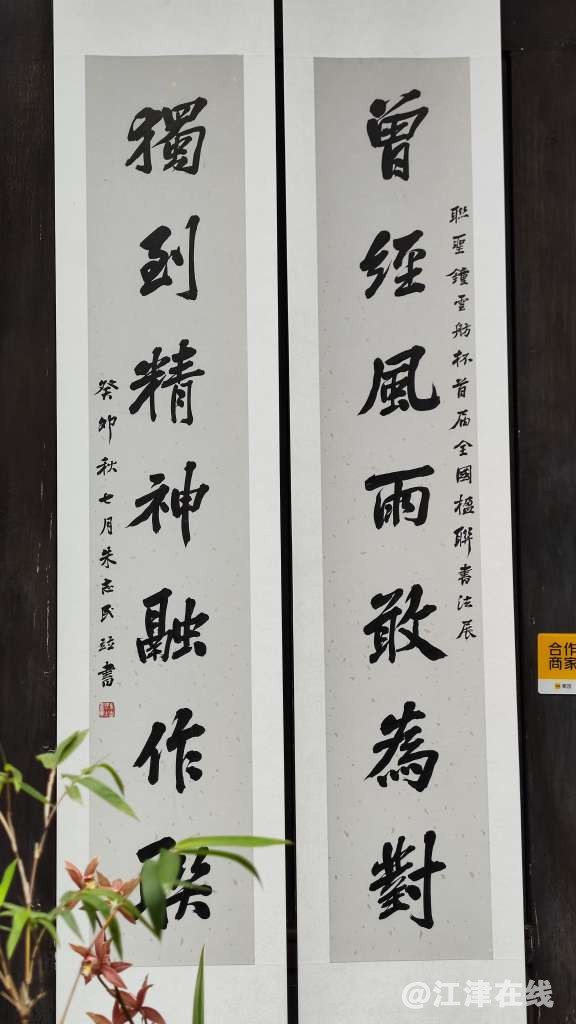 曾經風雨敢為對
聯聖鐘雲舫杯首届全國楹聯書法展
獨到精神融作联
癸卯秋七月朱志民竝書
合作
商家
@江津在线